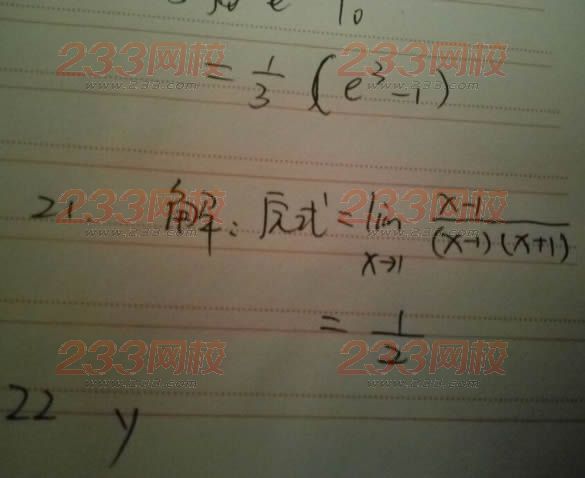 = 1/3 (e³-1)
21. 解:原式 = lim x→1 (x-1)/((x-1)(x+1))
= 1/2
22 y
233网校
www.233.com
233网校
www.233.com
233网校
www.233.com
233网校
www.233.com
233网校
www.233.com
233网校
www.233.com